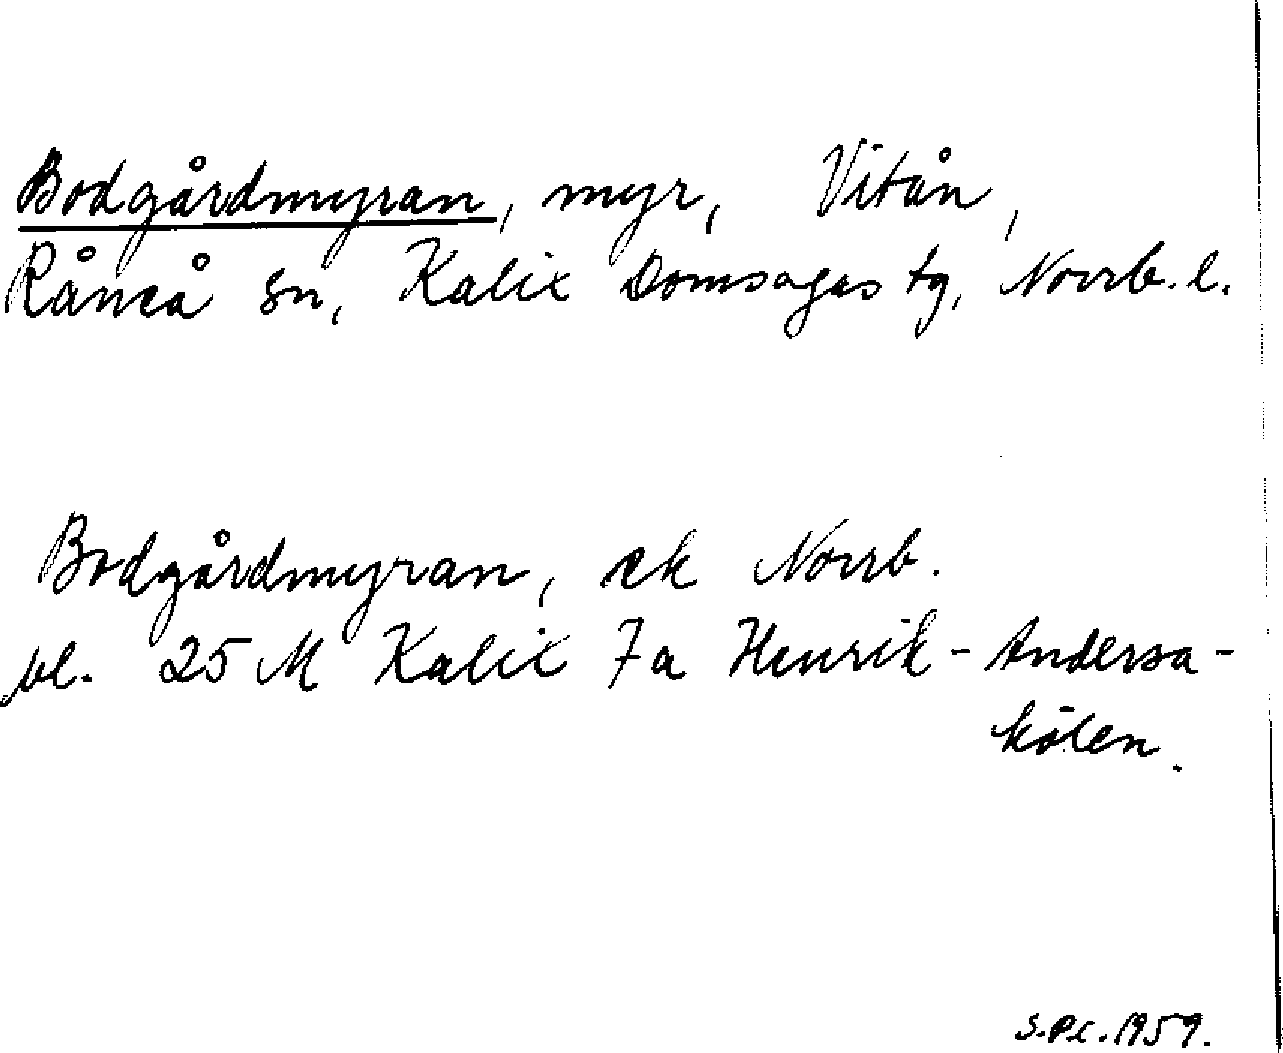 Bodgårdmyran, myr, Vitån,
Råneå sn, Kalix Domsagas tg, Norrb. l.
Bodgårdmyran, ek Norrb.
bl. 25 M Kalix 7a Henrik-Andersa-
kölen.
S.P.C. 1959.